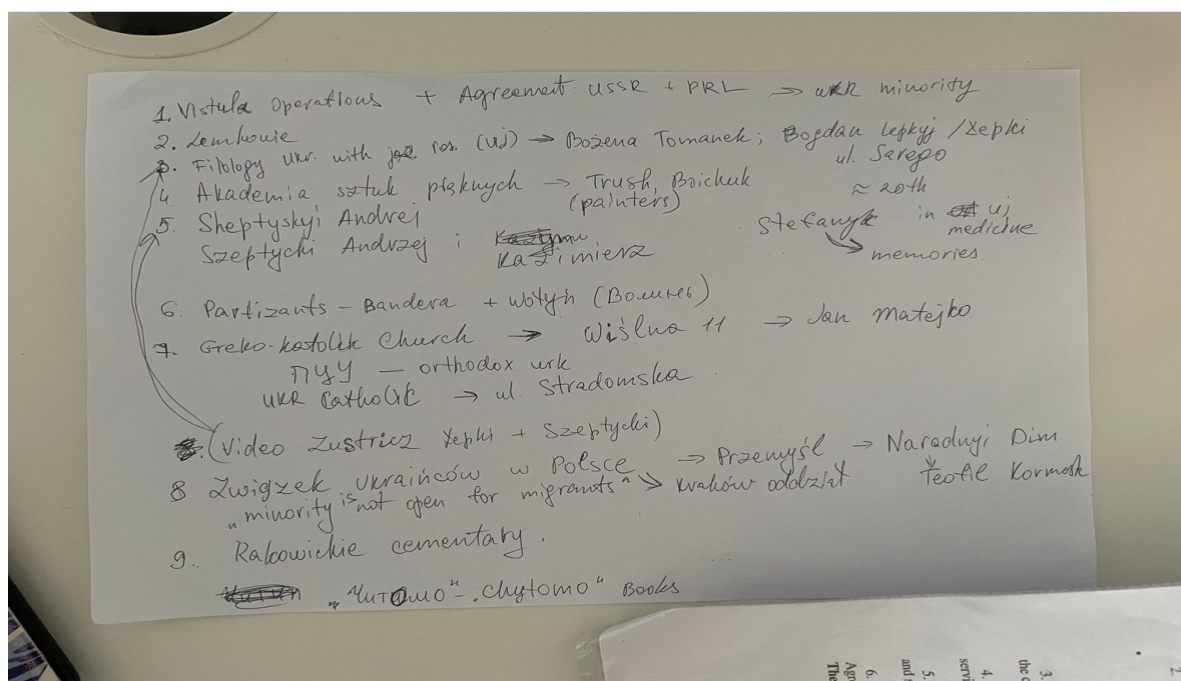 1. Vistula Operations + Agreement USSR + PRL → ukr minority
2. Lemkowie
3. Filology ukr. with ros. (UJ) → Bożena Tomanek; Bogdan Lepkyj / Łepki
ul. Sarego
4. Akademia sztuk pięknych → Trush, Boichuk
(painters)
≈ 20th
5. Sheptyskyi Andrej
Szeptycki Andrzej i Kazimierz
Stefanyk in UJ
medicine
→ memories.
6. Partizants – Bandera + Wołyń (Волинь)
7. Greko-katolik Church → Wiślna 11 → Jan Matejko
ПЦУ – orthodox urk
UKR Catholic → ul. Stradomska
(Video Zustricz Łepki + Szeptycki)
8 Związek Ukraińców w Polsce → Przemyśl → Narodnyi Dim
„minority is not open for migrants" → Kraków oddział
Teofil
9. Rakowickie cementary.
„Читомо" – „Chytomo" Books
3.
the c
4.
servi
5.
and
6.
Agr
The
2